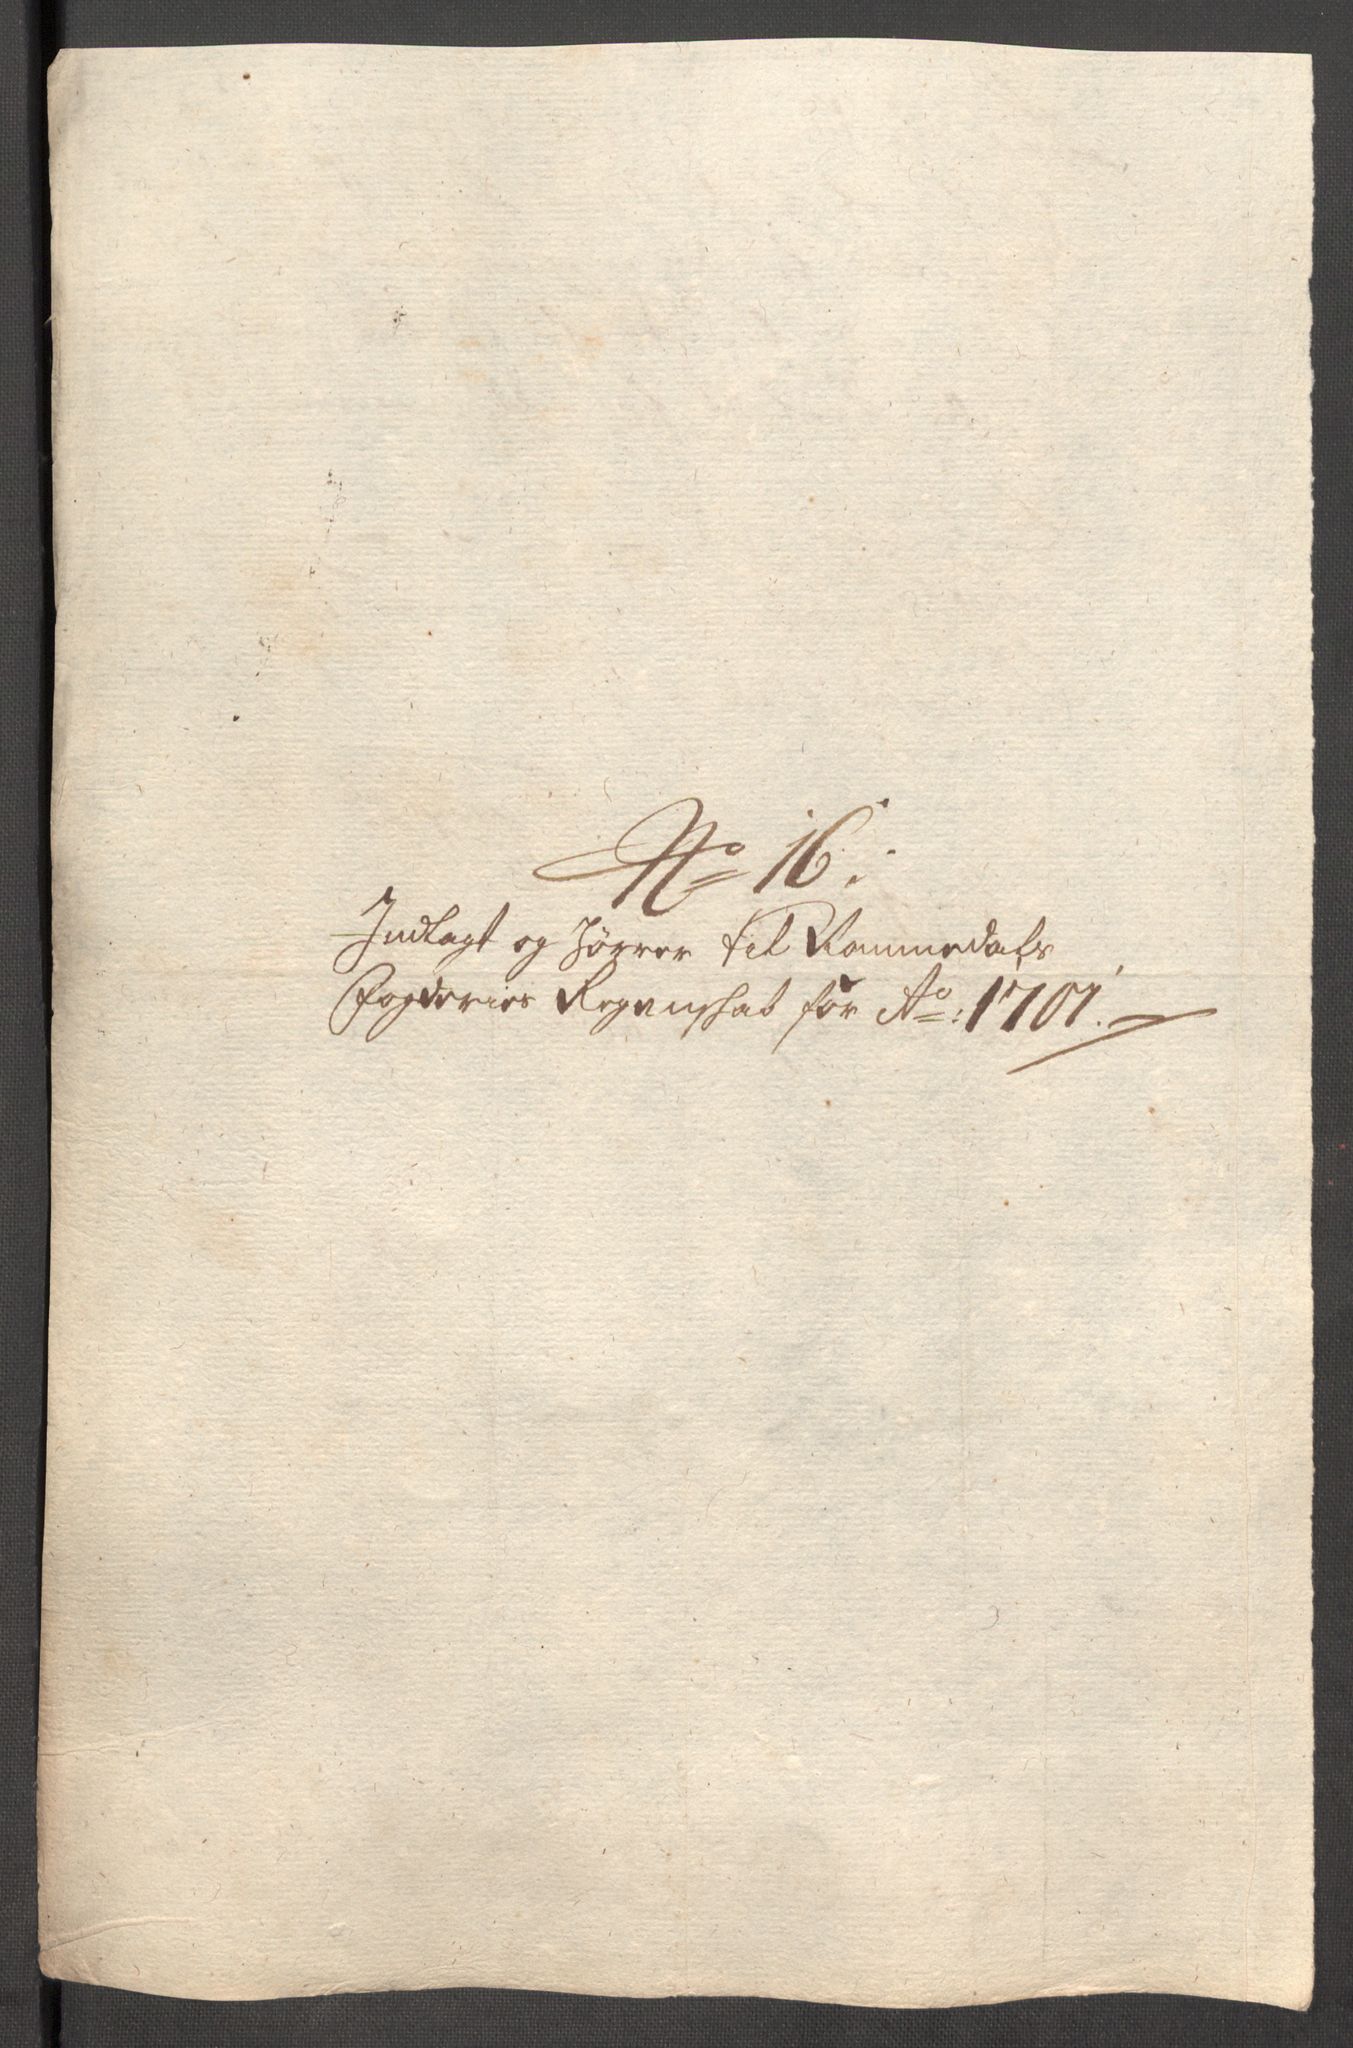 No 16.
Indlagt og hører til Rommedals
Fogderies Regenskab for Ao: 1701.